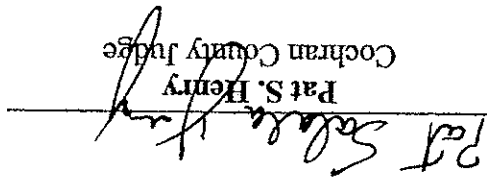 Pat Sabala Henry
Pat S. Henry
Cochran County Judge